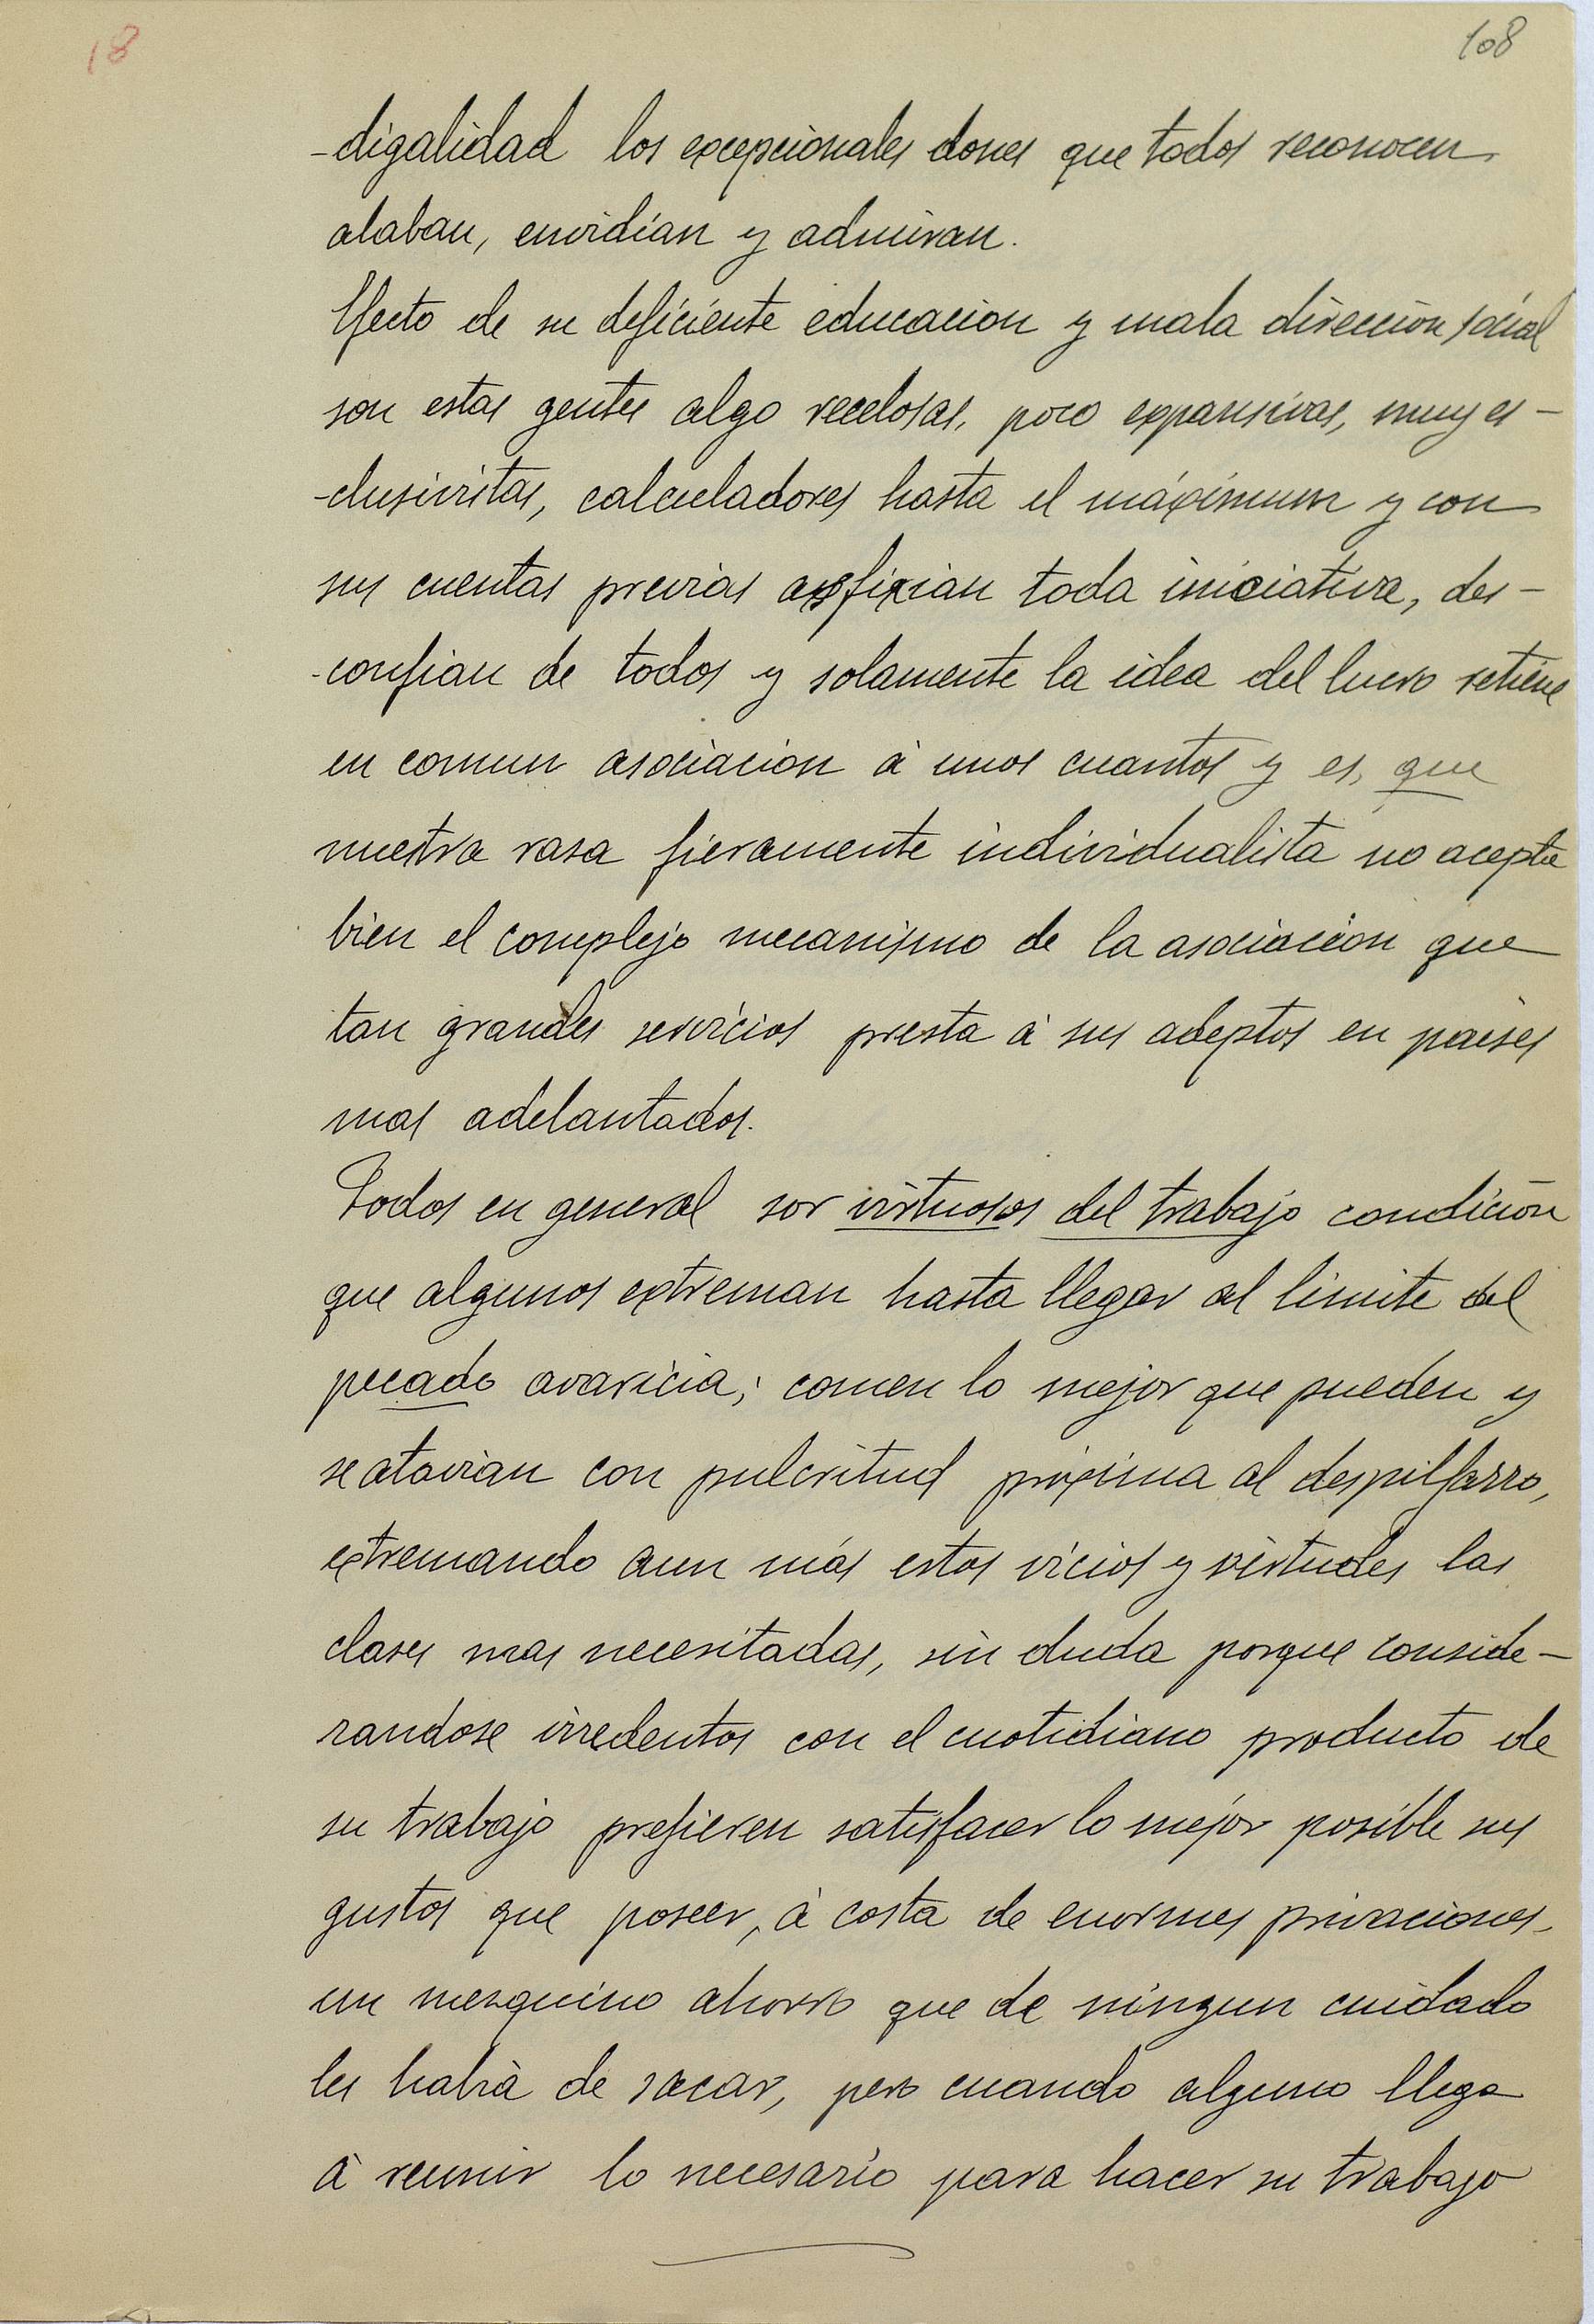 18
108
-digalidad los excepcionales dones que todos reconocen
alaban, envidian y admiran.
Efecto de su deficiente educacion y mala direccion social
son estas gentes algo recelosas, poco expansivas, muy es-
-clusivistas, calculadores hasta el máximum y con
sus cuentas previas asfixian toda iniciativa, des-
-confian de todos y solamente la idea del lucro retiene
en comun asociacion á unos cuantos y es, que
nuestra rasa fieramente individualista no acepta
bien el complejo mecanismo de la asociacion que
tan grandes servicios presta á sus adeptos en paises
mas adelantados.
Todos en general son virtuosos del trabajo condicion
que algunos extreman hasta llegar al limite del
pecado avaricia; comen lo mejor que pueden y
se atavian con pulcritud próxima al despilfarro,
extremando aun más estos vicios y virtudes las
clases mas necesitadas, sin duda porque conside-
randose irredentos con el cuotidiano producto de
su trabajo prefieren satisfacer lo mejor posible sus
gustos que poseer, á costa de enormes privaciones,
un mezquino ahorro que de ningun cuidado
les habrá de sacar, pero cuando alguno llega
á reunir lo necesario para hacer su trabajo